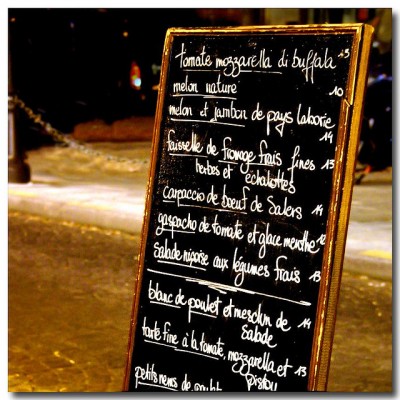 tomate mozzarella di buffala 13
melon nature 10
melon et jambon de pays laborie 14
faisselle de fromage frais fines 13
herbes et échalottes
carpaccio de bœuf de Salers 14
gaspacho de tomate et glace menthe 12
Salade niçoise aux légumes frais 13
blanc de poulet et mesclun de 14
Salade
tarte fine à la tomate, mozzarella et 13
pistou
petits nems de poulet